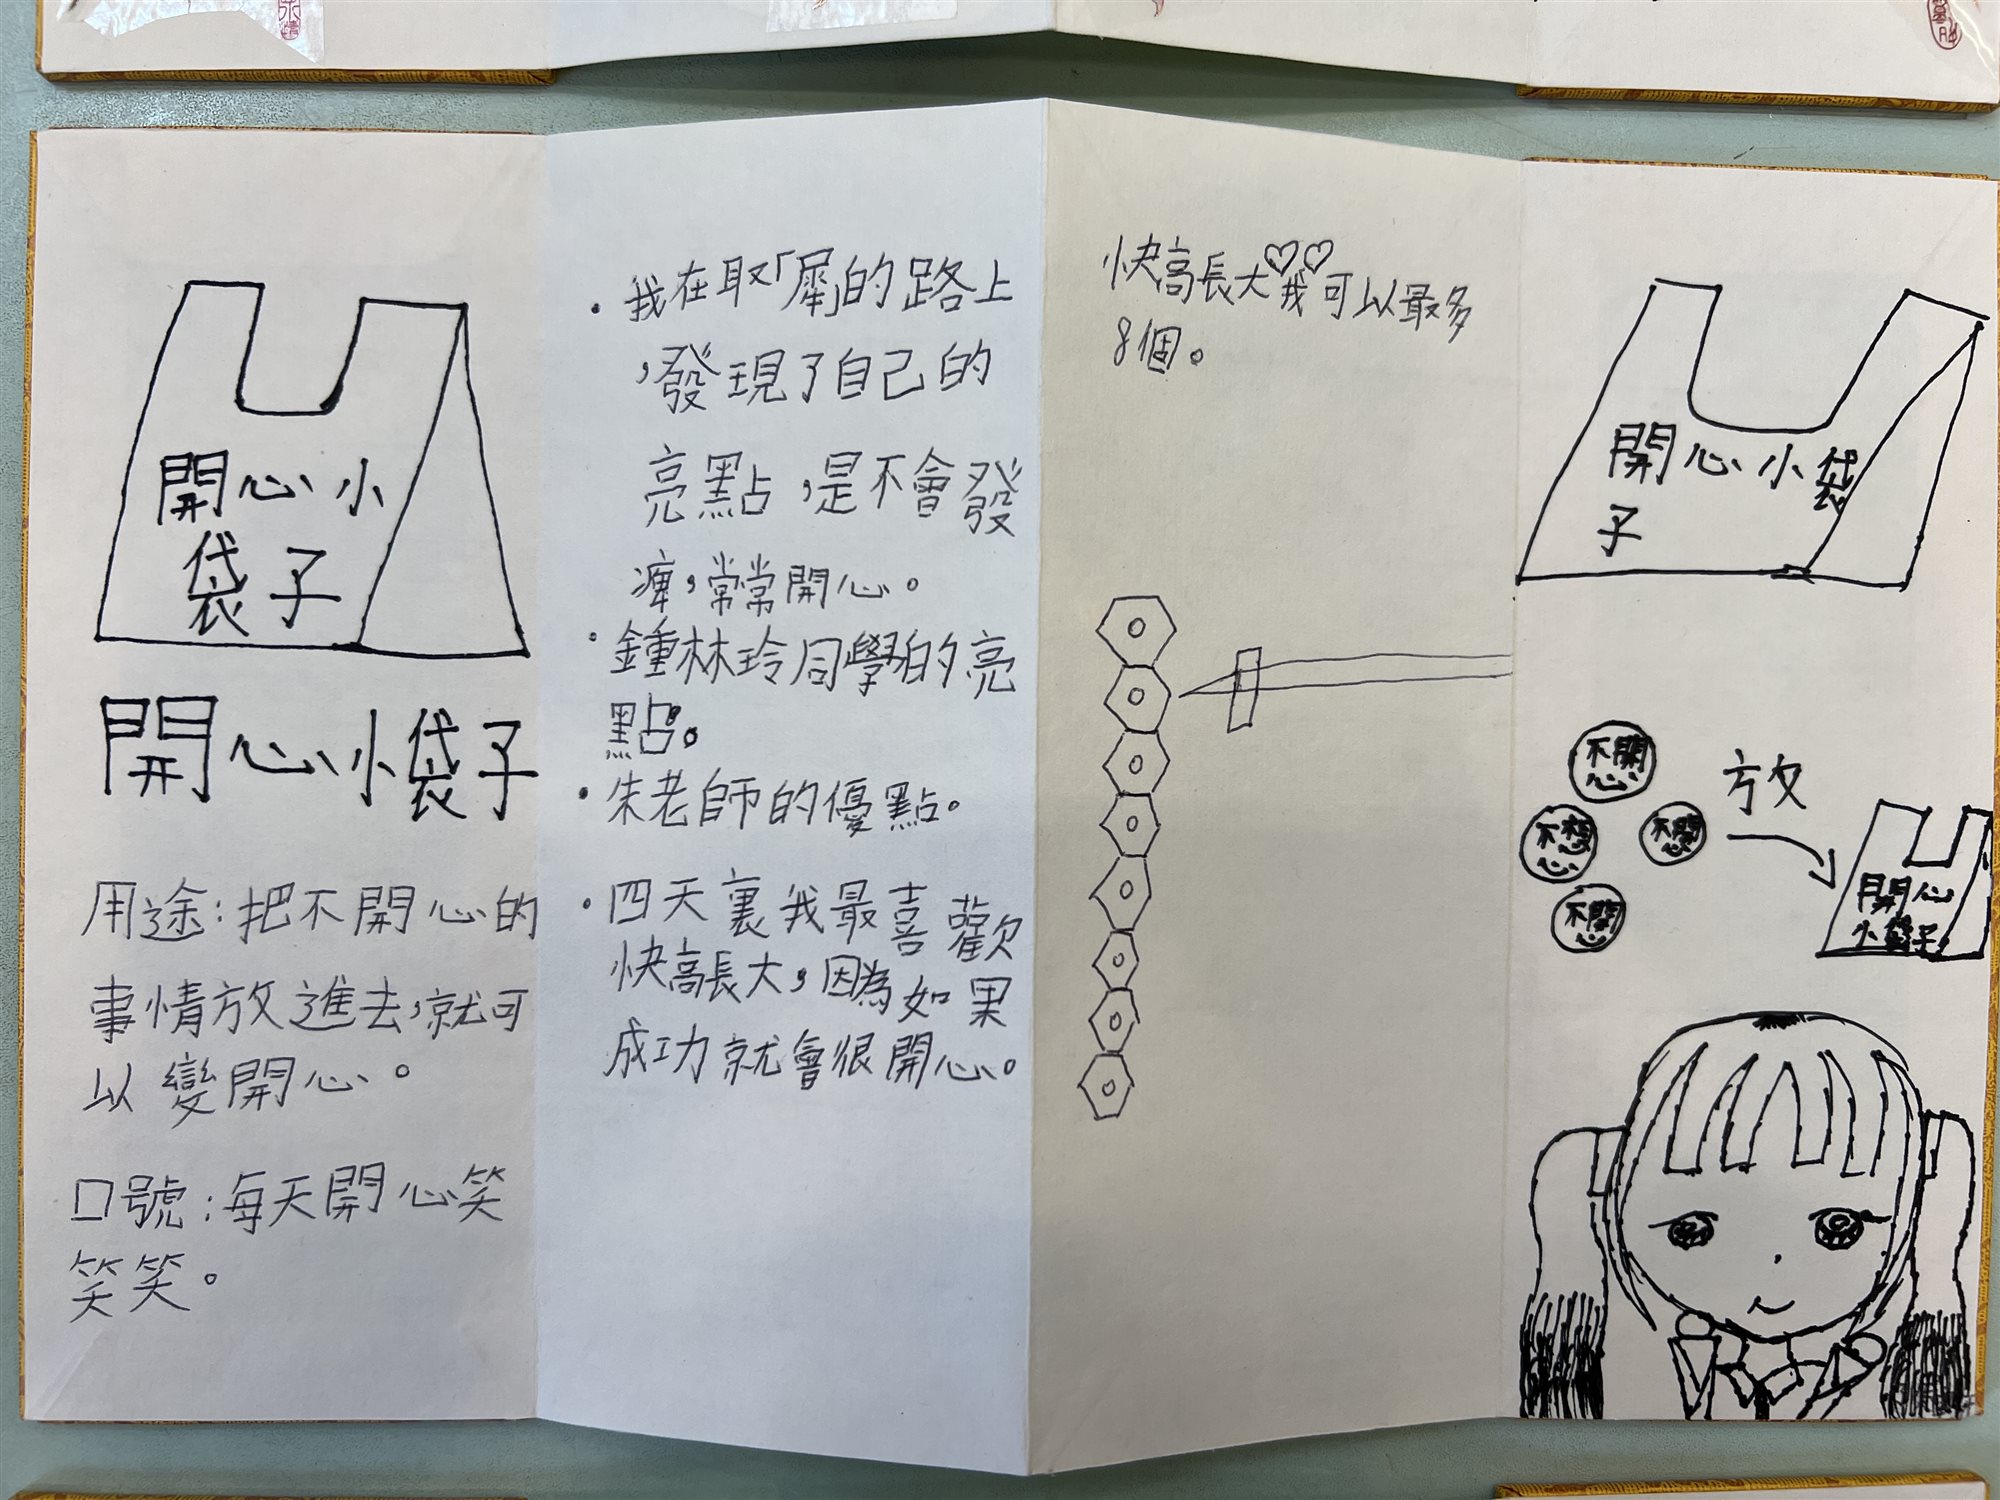 開心小
袋子
開心小袋子
用途:把不開心的
事情放進去,就可
以變開心。
口號:每天開心笑
笑笑。
·我在取「犀」的路上
,發現了自己的
亮點,是不會發
瘴,常常開心。
·鍾林玲同學的亮
點。
·朱老師的優點。
·四天裏我最喜歡
快高長大,因為如果
成功就會很開心。
快高長大♡♡我可以最多
8個。
開心小袋
子
不開
心
不想
心
不開
心
不開
心
放
開心
小袋子